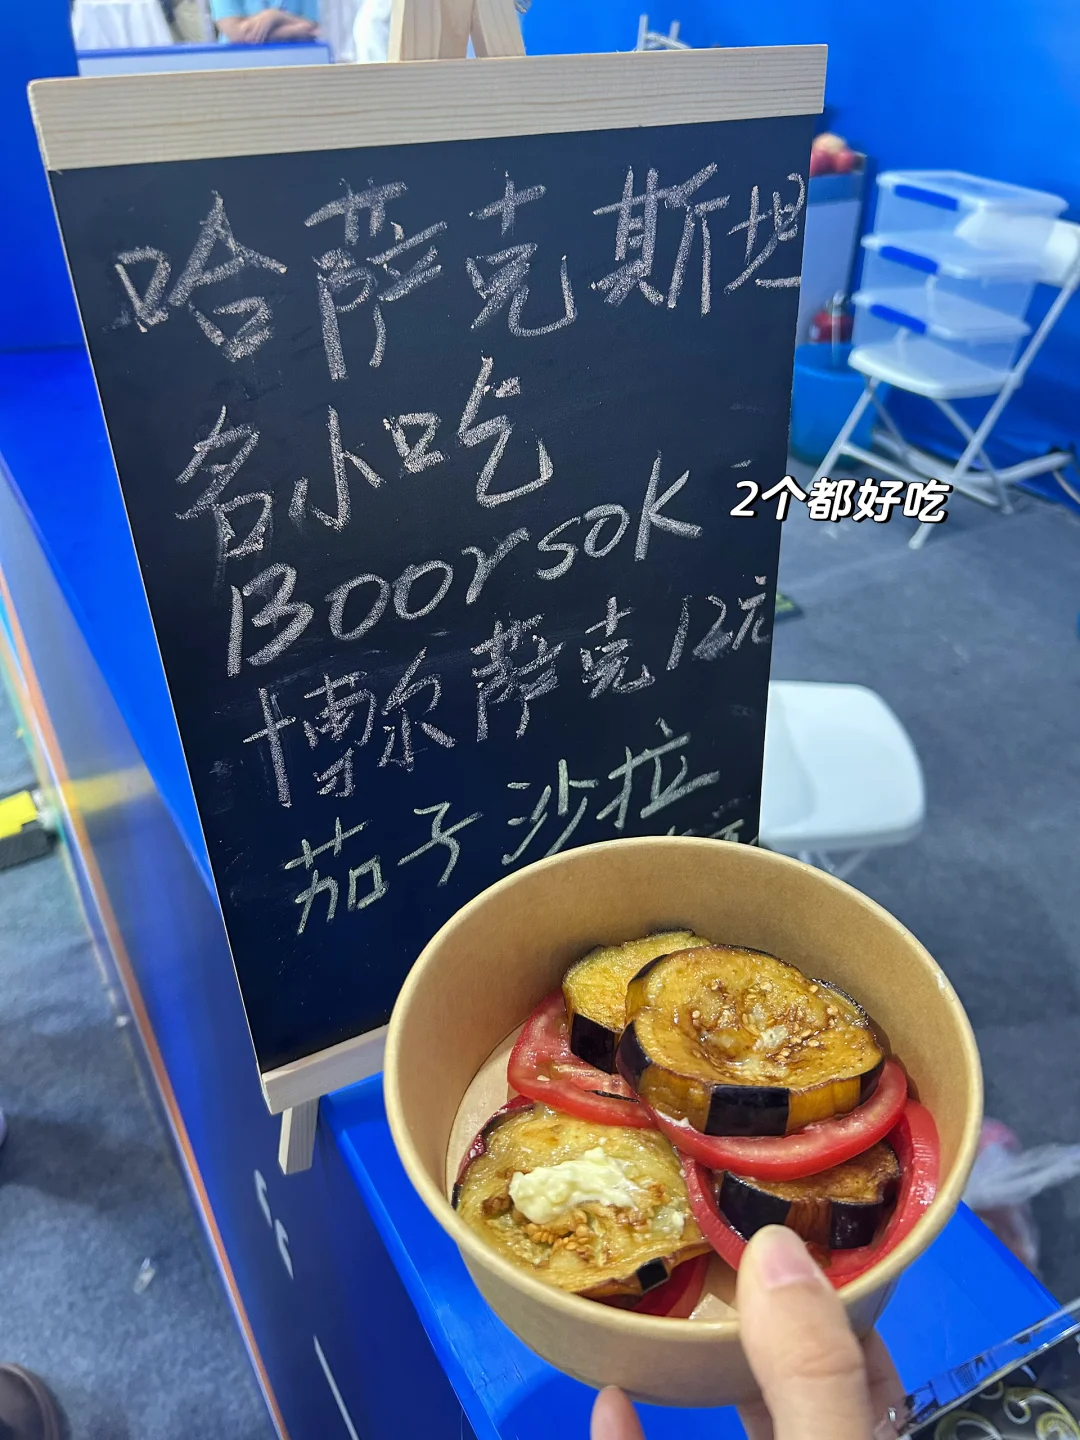 哈萨克斯坦
名小吃
Boorsok
博尔萨克12元
茄子沙拉
2个都好吃